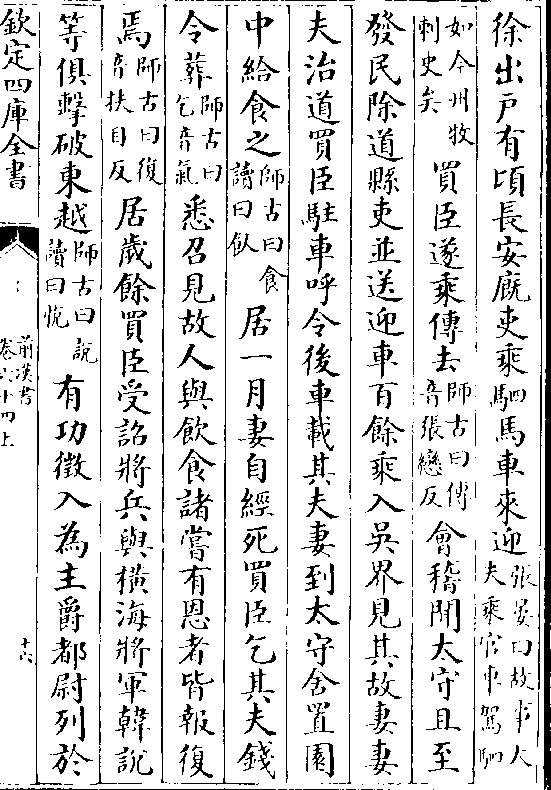 徐出戶有頃長安廐吏乘駟馬車來迎張晏曰故事大夫乘官車駕駟
如今州牧刺史矣買臣遂乘傳去師古曰傳音張戀反會稽聞太守且至
發民除道縣吏並送迎車百餘乘入吳界見其故妻妻
夫治道買臣駐車呼令後車載其夫妻到太守舍置園
中給食之師古曰食讀曰飤居一月妻自經死買臣乞其夫錢
令葬師古曰乞音氣悉召見故人與飲食諸嘗有恩者皆報復
焉師古曰復音扶目反居歲餘買臣受詔將兵與橫海將軍韓說
等俱擊破東越師古曰說讀曰悅有功徵入為主爵都尉列於
欽定四庫全書
前漢書
卷六十四上
十六